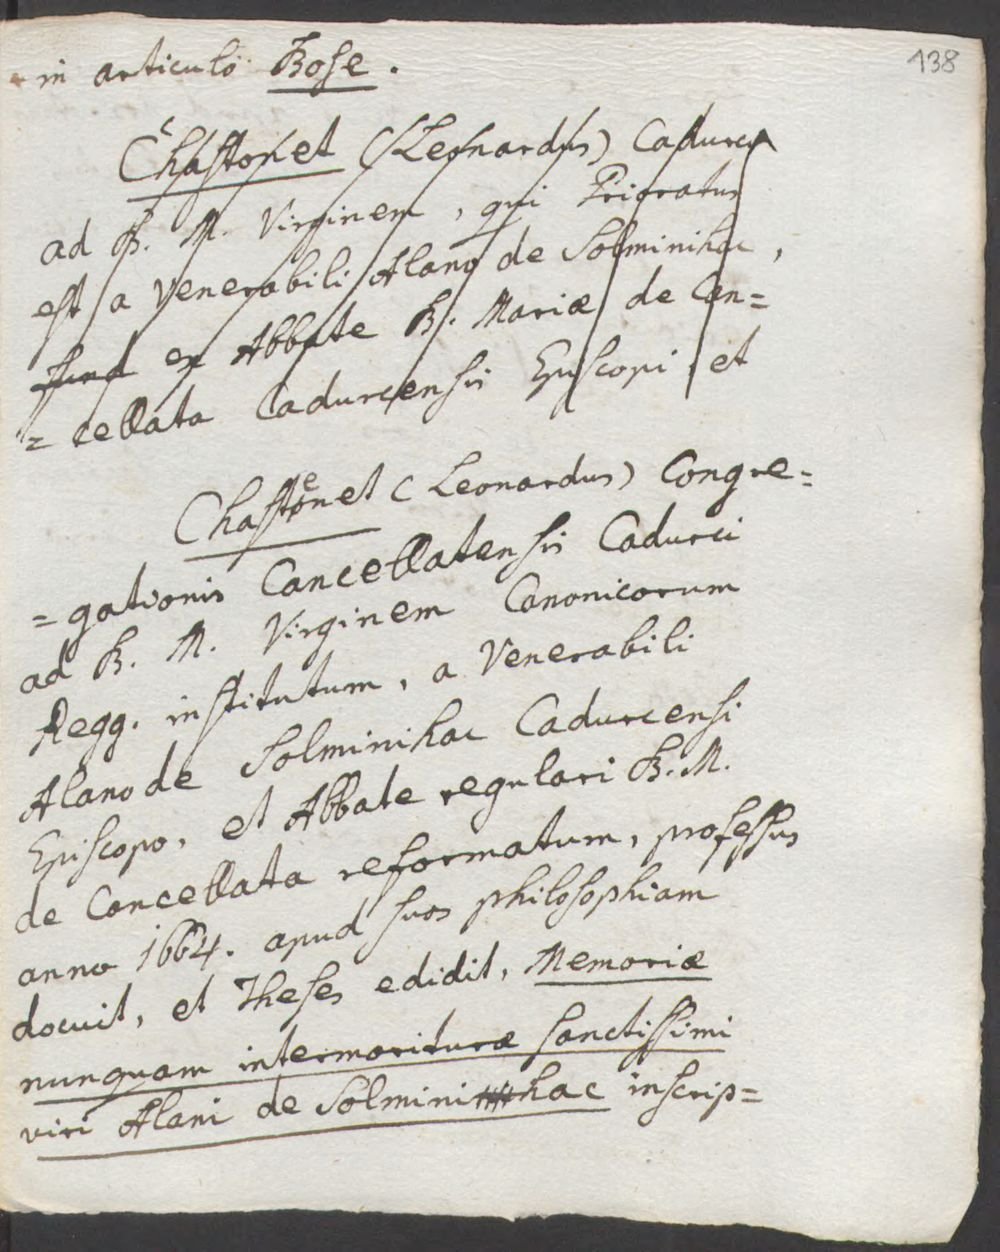 138
in articulo Bose.
Chastonet (Leonardus) Cadurci
ad B. M. Virginem, qui Prioratus
est a Venerabili Alano de Solminihac,
ex Abbate B. Mariæ de Can=
=cellata Cadurcensis Episcopi, et
Chastenet (Leonardus) Congre=
=gationis Cancellatensis Cadurci
ad B. M. Virginem Canonicorum
Regg. institutum, a Venerabili
Alano de Solminihac Cadurcensi
Episcopo, et Abbate regulari B. M.
de Cancellata reformatum, professus
anno 1664. apud suos philosophiam
docuit, et Theses edidit, Memoriæ
nunquam intermorituræ sanctissimi
viri Alani de Solminihac inscrip=